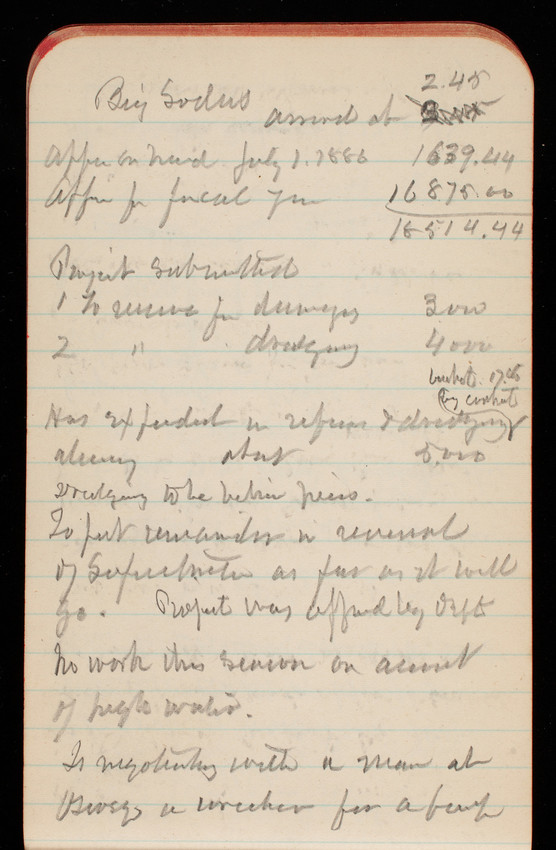 2.45
Big Sodus arrived at
Appn on hand July 1. 1886 1639.44
Appn for fiscal year 16875.00
18514.44
Project submitted
1 To reserve for damages 3000
2 " dredging 4000
by contract
Has expended in repairs & dredging
already about 5.000
Dredging to be betwn piers.
To put remainder in renewal
of Superstructure as far as it will
go. Project was appvd by Dept
No work this season on account
of high water.
Is negotiating with a man at
Oswego a wrecker for a pump